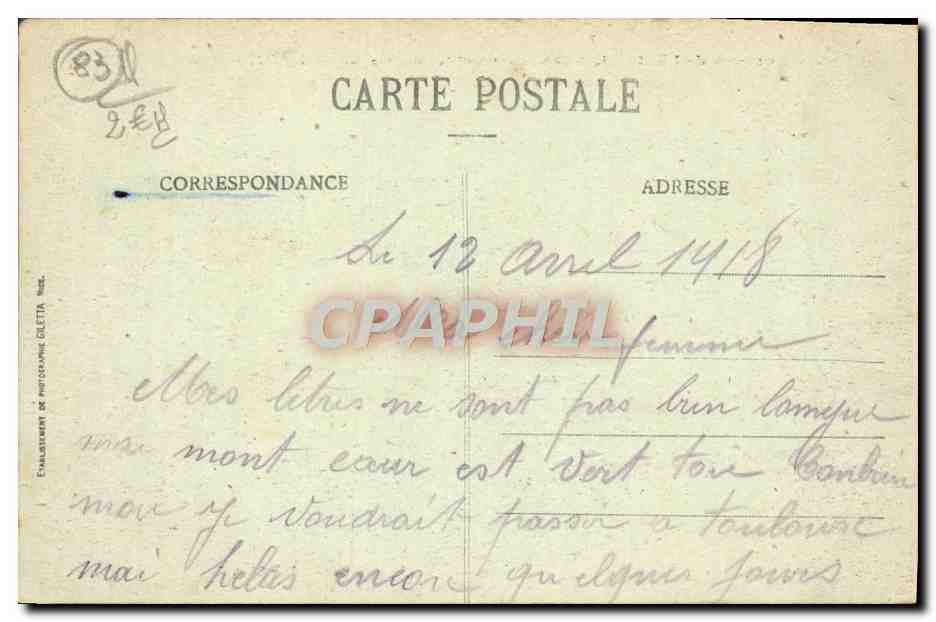 83
2€
CARTE POSTALE
CORRESPONDANCE
ADRESSE
Le 12 Avril 1918
CPARHIL
Ma chère femme
Mes letres ne sont pas bien
mai mont cœur est vert toie Conbien
moi je voudrait passer a toulouse
mai helas encore quelques jours
ETABLISSEMENT DE PHOTOGRAPHIE GILETTA NICE.